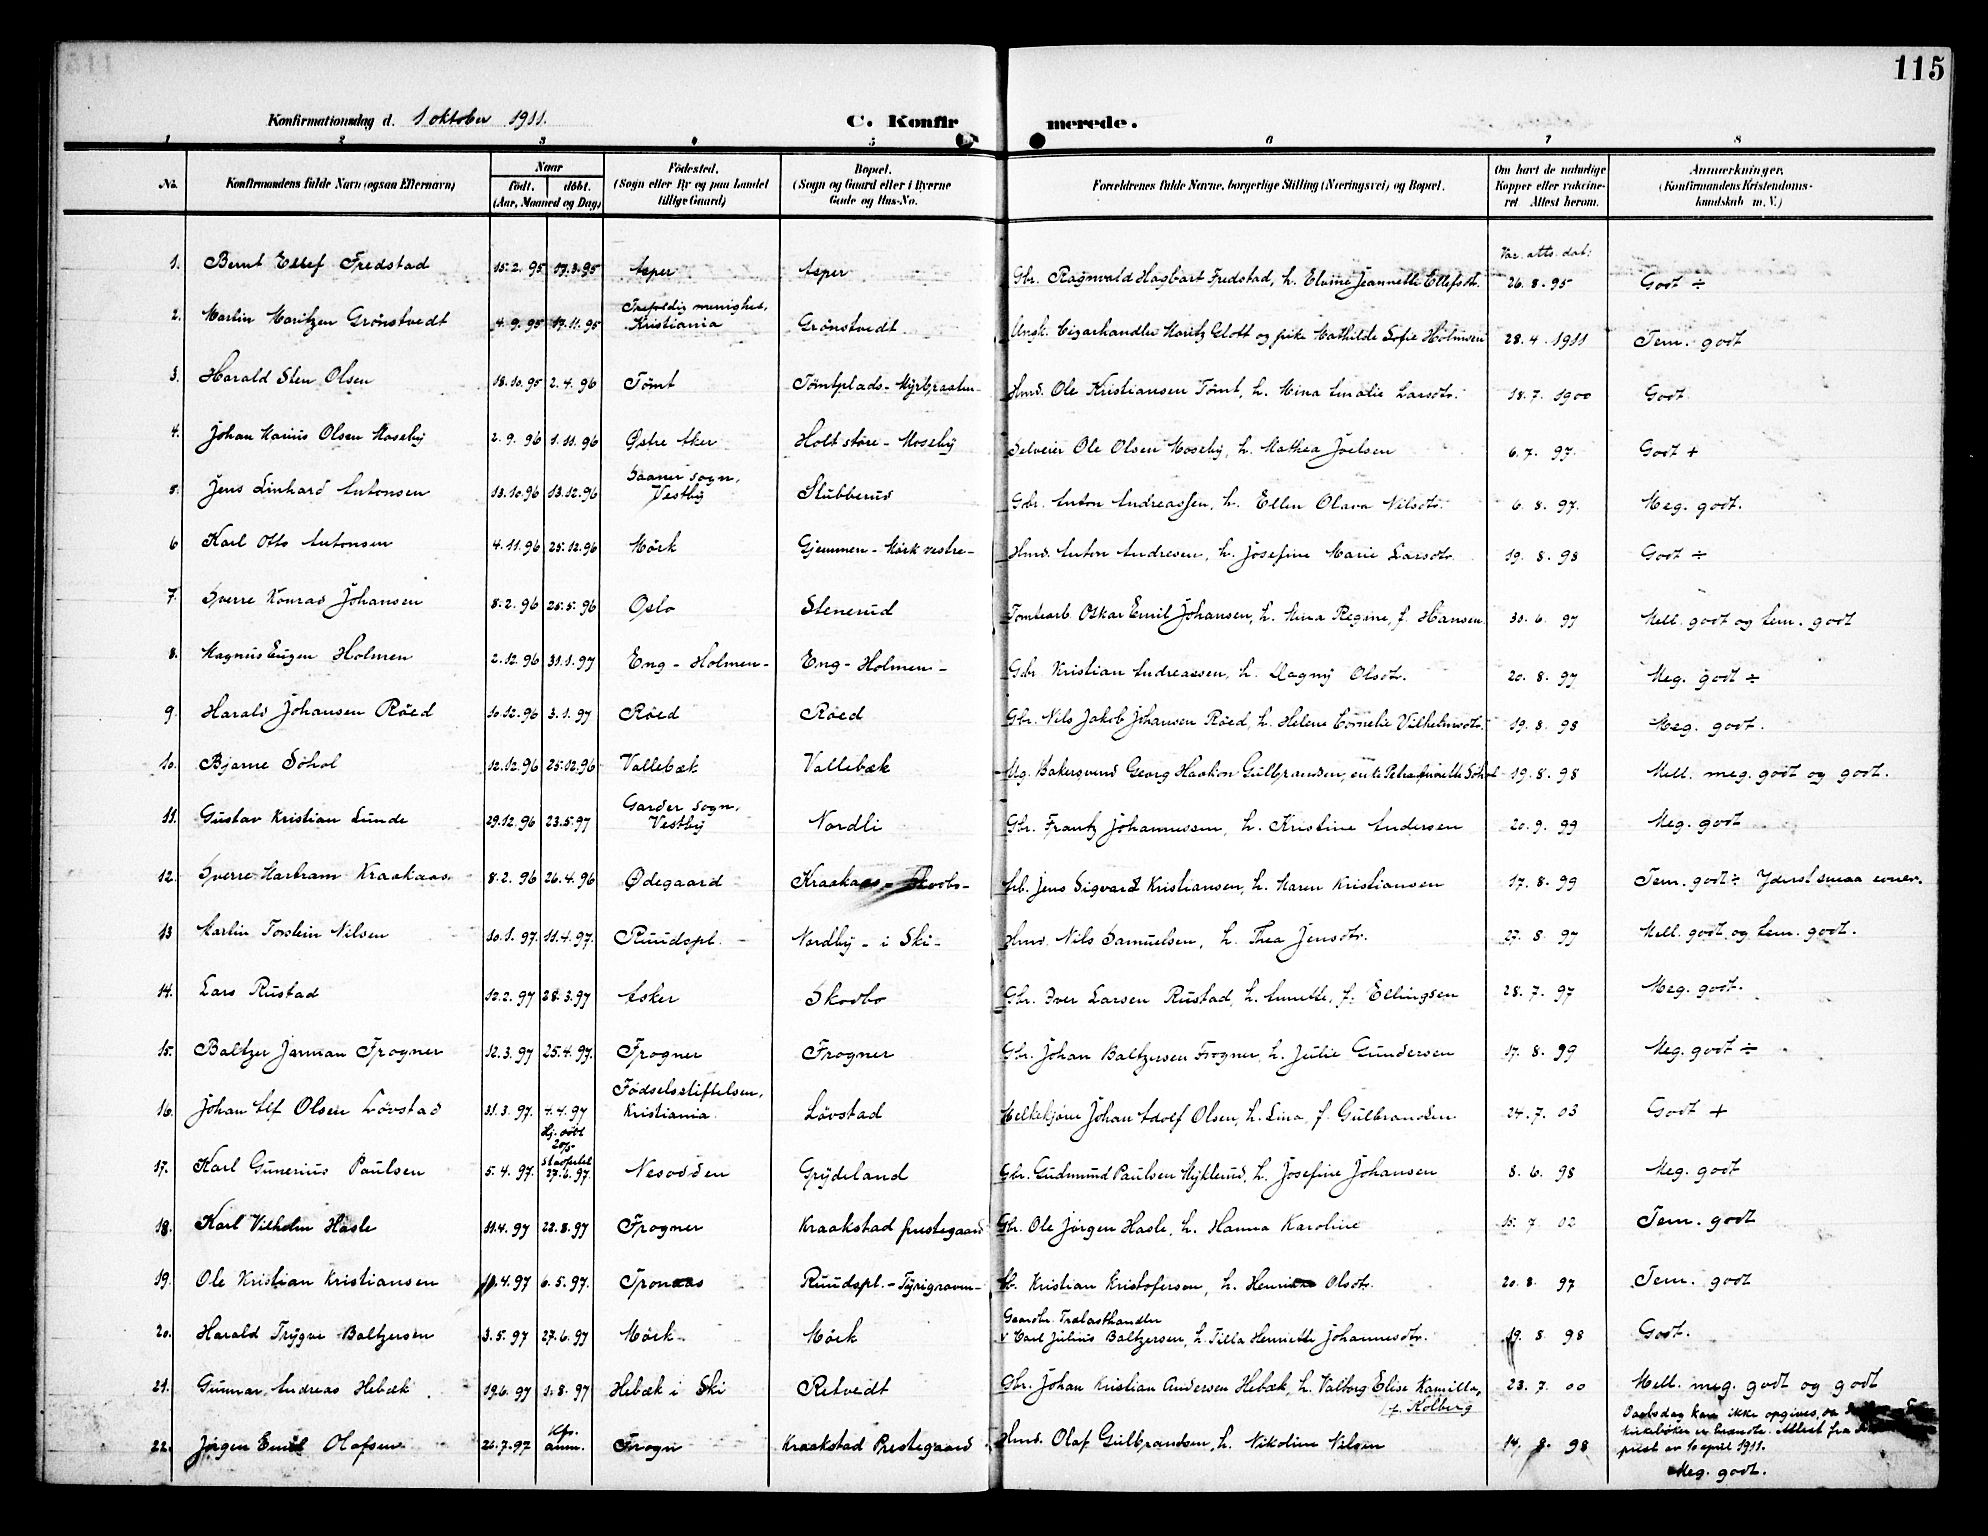 115
Konfirmationsdag d. 1 oktober 1911.
C. Konfirmerede.
1 2 3 4 5 6 7 8
No.
Konfirmandens fulde Navn (ogsaa Efternavn)
Naar
født. døbt.
(Aar, Maaned og Dag)
Fødested.
(Sogn eller By og paa Landet
tillige Gaard)
Bopæl.
(Sogn og Gaard eller i Byerne
Gade og Hus-No.
Forældrenes fulde Navne, borgerlige Stilling (Næringsvei) og Bopæl.
Om havt de naturlige
Kopper eller vakcine-
ret Attest herom.
Anmerkninger.
(Konfirmandens Kristendoms-
kundskab m. V.)
Vac. atts. dat:
1. Bernt Ellef Fredstad 15.2.95 17.3.95 Asper Asper Gbr. Ragnvald Hagbart Fredstad, h. Elvine Jeannette Ellefsdtr. 26.8.95 Godt ÷
2. Martin Moritzen Grönstvedt 4.9.95 17.11.95 Trefoldig menighet, Kristiania Grönstvedt Ungk. Cigarhandler Moritz Glott og pike Mathilde Sofie Holmsen 28.4.1911 Tem. godt
3. Harald Sten Olsen 18.10.95 2.4.96 Tömt Tömtplads - Myrbraaten - Hmd. Ole Kristiansen Tömt, h. Mina Amalie Larsdtr. 18.7.1900 Godt
4. Johan Marius Olsen Moseby 2.9.96 1.11.96 Østre Aker Holt store - Moseby Selveier Ole Olsen Moseby, h. Mathea Joelsen 6.7.97 Godt +
5. Jens Linhard Antonsen 13.10.96 13.12.96 Saaner sogn, Vestby Stubberud Gbr. Anton Andreassen, h. Ellen Olava Nilsdtr. 6.8.97. Meg. godt.
6 Karl Otto Antonsen 4.11.96 25.12.96 Mörk Gjemmen - Mörk vestre - Hmd. Anton Andresen, h. Josefine Marie Larsdtr. 19.8.98 Godt ÷
7. Sverre Konrad Johansen 8.2.96 25.5.96 Oslo Stenerud Tomtearb. Oskar Emil Johansen, h. Mina Regine, f. Hansen. 30.6.97 Mell. godt og tem. godt
8. Magnus Eugen Holmen 2.12.96 31.1.97 Eng - Holmen - Eng - Holmen - Gbr. Kristian Andreassen, h. Dagny Olsdtr. 20.8.97 Meg. godt ÷
9. Harald Johansen Röed 10.12.96 3.1.97 Röed Röed Gbr. Nils Jakob Johansen Röed, h. Helene Cornelie Vilhelmsdtr. 19.8.98 Meg. godt.
10. Bjarne Söhol 12.12.96 25.12.96 Vallebæk Vallebæk Ug. Bakersvend Georg Haakon Gulbrandsen, enke Petra Söhol 19.8.98 Mell. meg. godt og godt.
11. Gustav Kristian Lunde 29.12.96 23.5.97 Garder sogn, Vestby Nordli Gbr. Frantz Johannessen, h. Kristine Andersen 20.9.99 Meg. godt
12. Sverre Hartram Kraakaas. 8.2.96 26.4.96 Ødegaard Kraakaas - Skodbo - Arb. Jens Sigvard Kristiansen, h. Maren Kristiansen 17.8.99 Tem. godt ÷ Yderst smaa evner.
13 Martin Torstein Nilsen 10.1.97. 11.4.97. Ruudspl. - Nordby - i Ski - Hmd. Nils Samuelsen, h. Thea Jensdtr. 27.8.97 Mell. godt og tem. godt.
14. Lars Rustad 12.2.97 28.3.97 Asker Skodbo Gbr. Iver Larsen Rustad, h. Anette, f. Ellingsen 28.7.97 Meg. godt.
15. Baltzer Jarman Frogner 12.3.97 25.4.97. Frogner Frogner Gbr. Johan Baltzersen Frogner, h. Julie Gundersen 17.8.99 Meg. godt ÷
16. Johan Alf Olsen Lövstad 31.3.97. 4.4.97 Hj. döbt Födselsstiftelsen, Kristiania. Lövstad Melkekjörer Johan Adolf Olsen, h. Lina, f. Gulbrandsen 24.7.03 Godt +
17. Karl Gunerius Paulsen 5.4.97. 27.6.97. Nesodden Grydeland Gbr. Gudmund Paulsen Myklerud, h. Josefine Johansen 8.6.98 Meg. godt
18. Karl Vilhelm Hasle 11.4.97 22.8.97 Frogner Kraakstad prestegaard Gbr. Ole Jörgen Hasle, h. Hanna Karoline 15.7.02 Tem. godt
19. Ole Kristian Kristiansen 4.97 6.5.97. Tronaas Ruudspl. - Tyrigraven - Arb. Kristian Kristofersen, h. Olsdtr. 20.8.97 Tem. godt
20. Harald Trygve Baltzersen 3.5.97 27.6.97 Mörk. Mörk Gaardbr. Trælasthandler Carl Julius Baltzersen, h. Tilla Henriette Johannesdtr. 19.8.98 Godt.
21. Gunnar Andreas Hebæk 19.6.97 1.8.97 Hebæk i Ski Retvedt Gbr. Johan Kristian Andersen Hebæk, h. Valborg Elise Kamilla, f. Kolberg 23.7.00 Mell. meg. godt og godt
22. Jörgen Emil Olafsen 26.7.97 Kfr. anm. Frogn Kraakstad Prestegaard Hmd. Olaf Gulbrandsen, h. Nikoline Nilsen 14.8.98 Daabsdag kan ikke opgives, da
kirkeböker er brændte. Attest fra
prest av 10 april 1911.
Meg. godt.